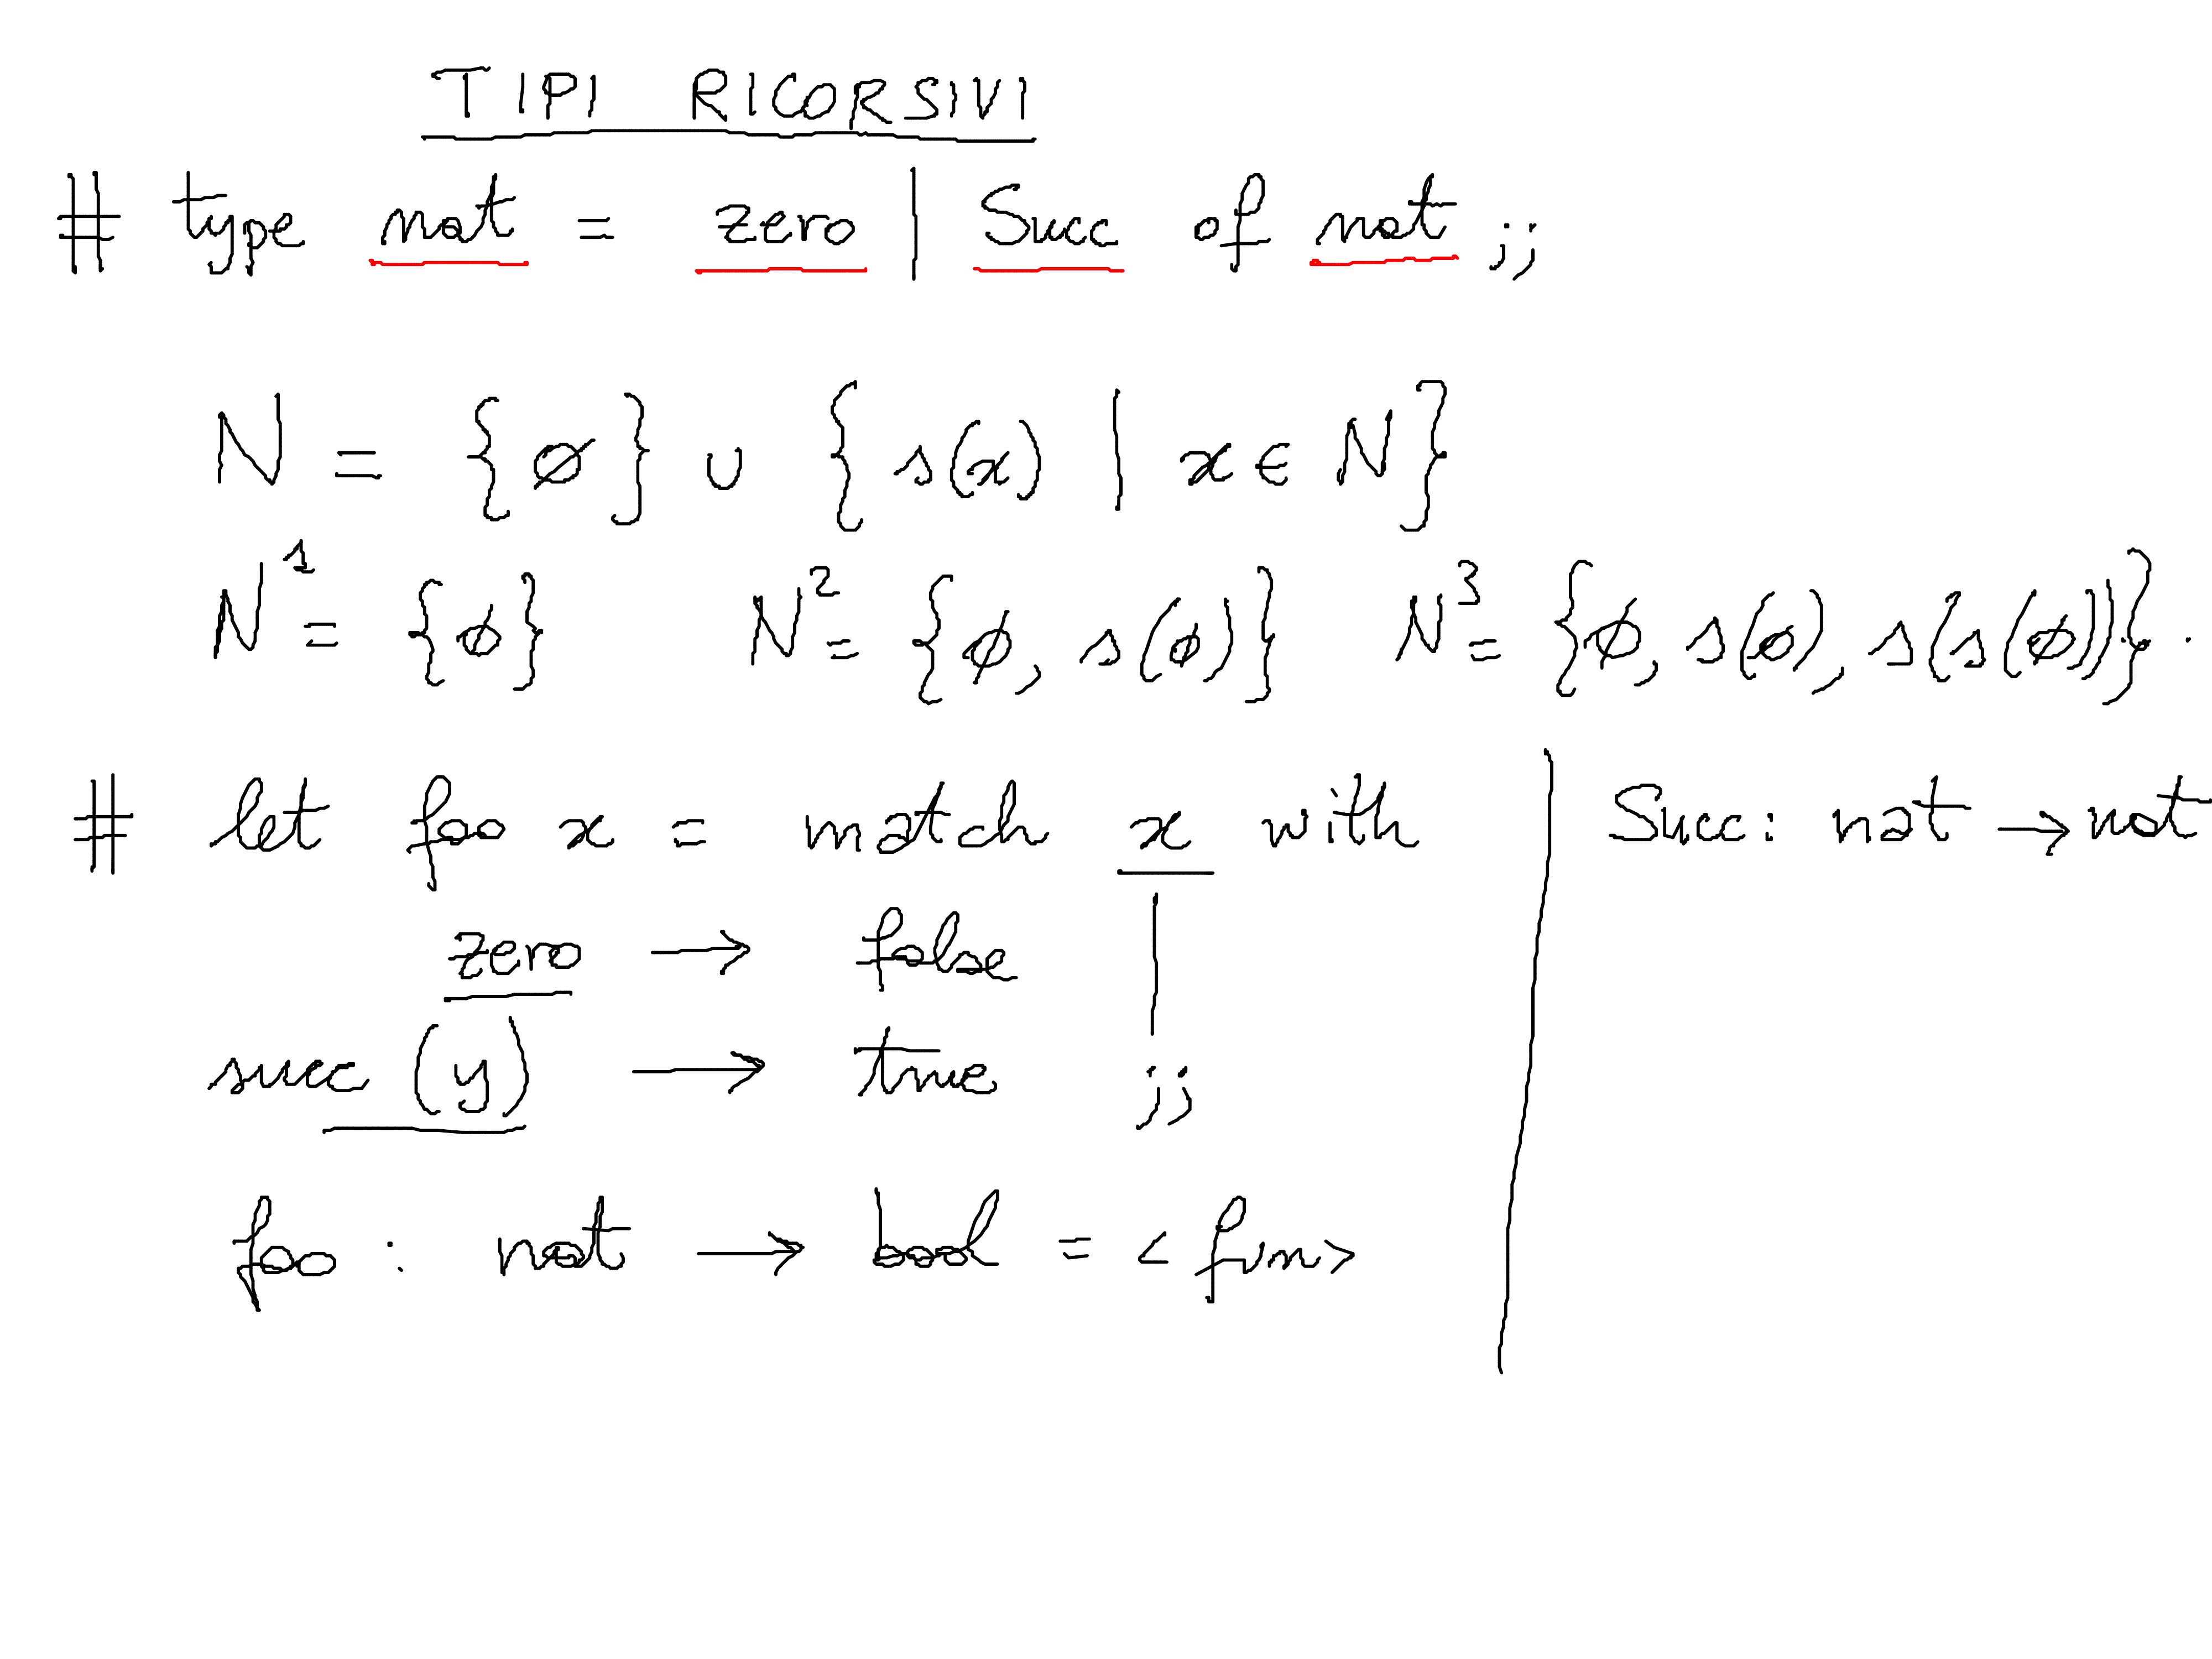 TIPI RICORSIVI
# type nat = zero | Succ of nat ;;
N = {ø} ∪ { s(x) | x ∈ N }
N¹ = {ø} N² = {ø, s(ø)} N³ = {ø, s(ø), s(s(ø))} .
# let foo x = match x with
zero → false |
succ (y) → true ;;
foo : nat → bool = < fun >
Succ: nat → nat